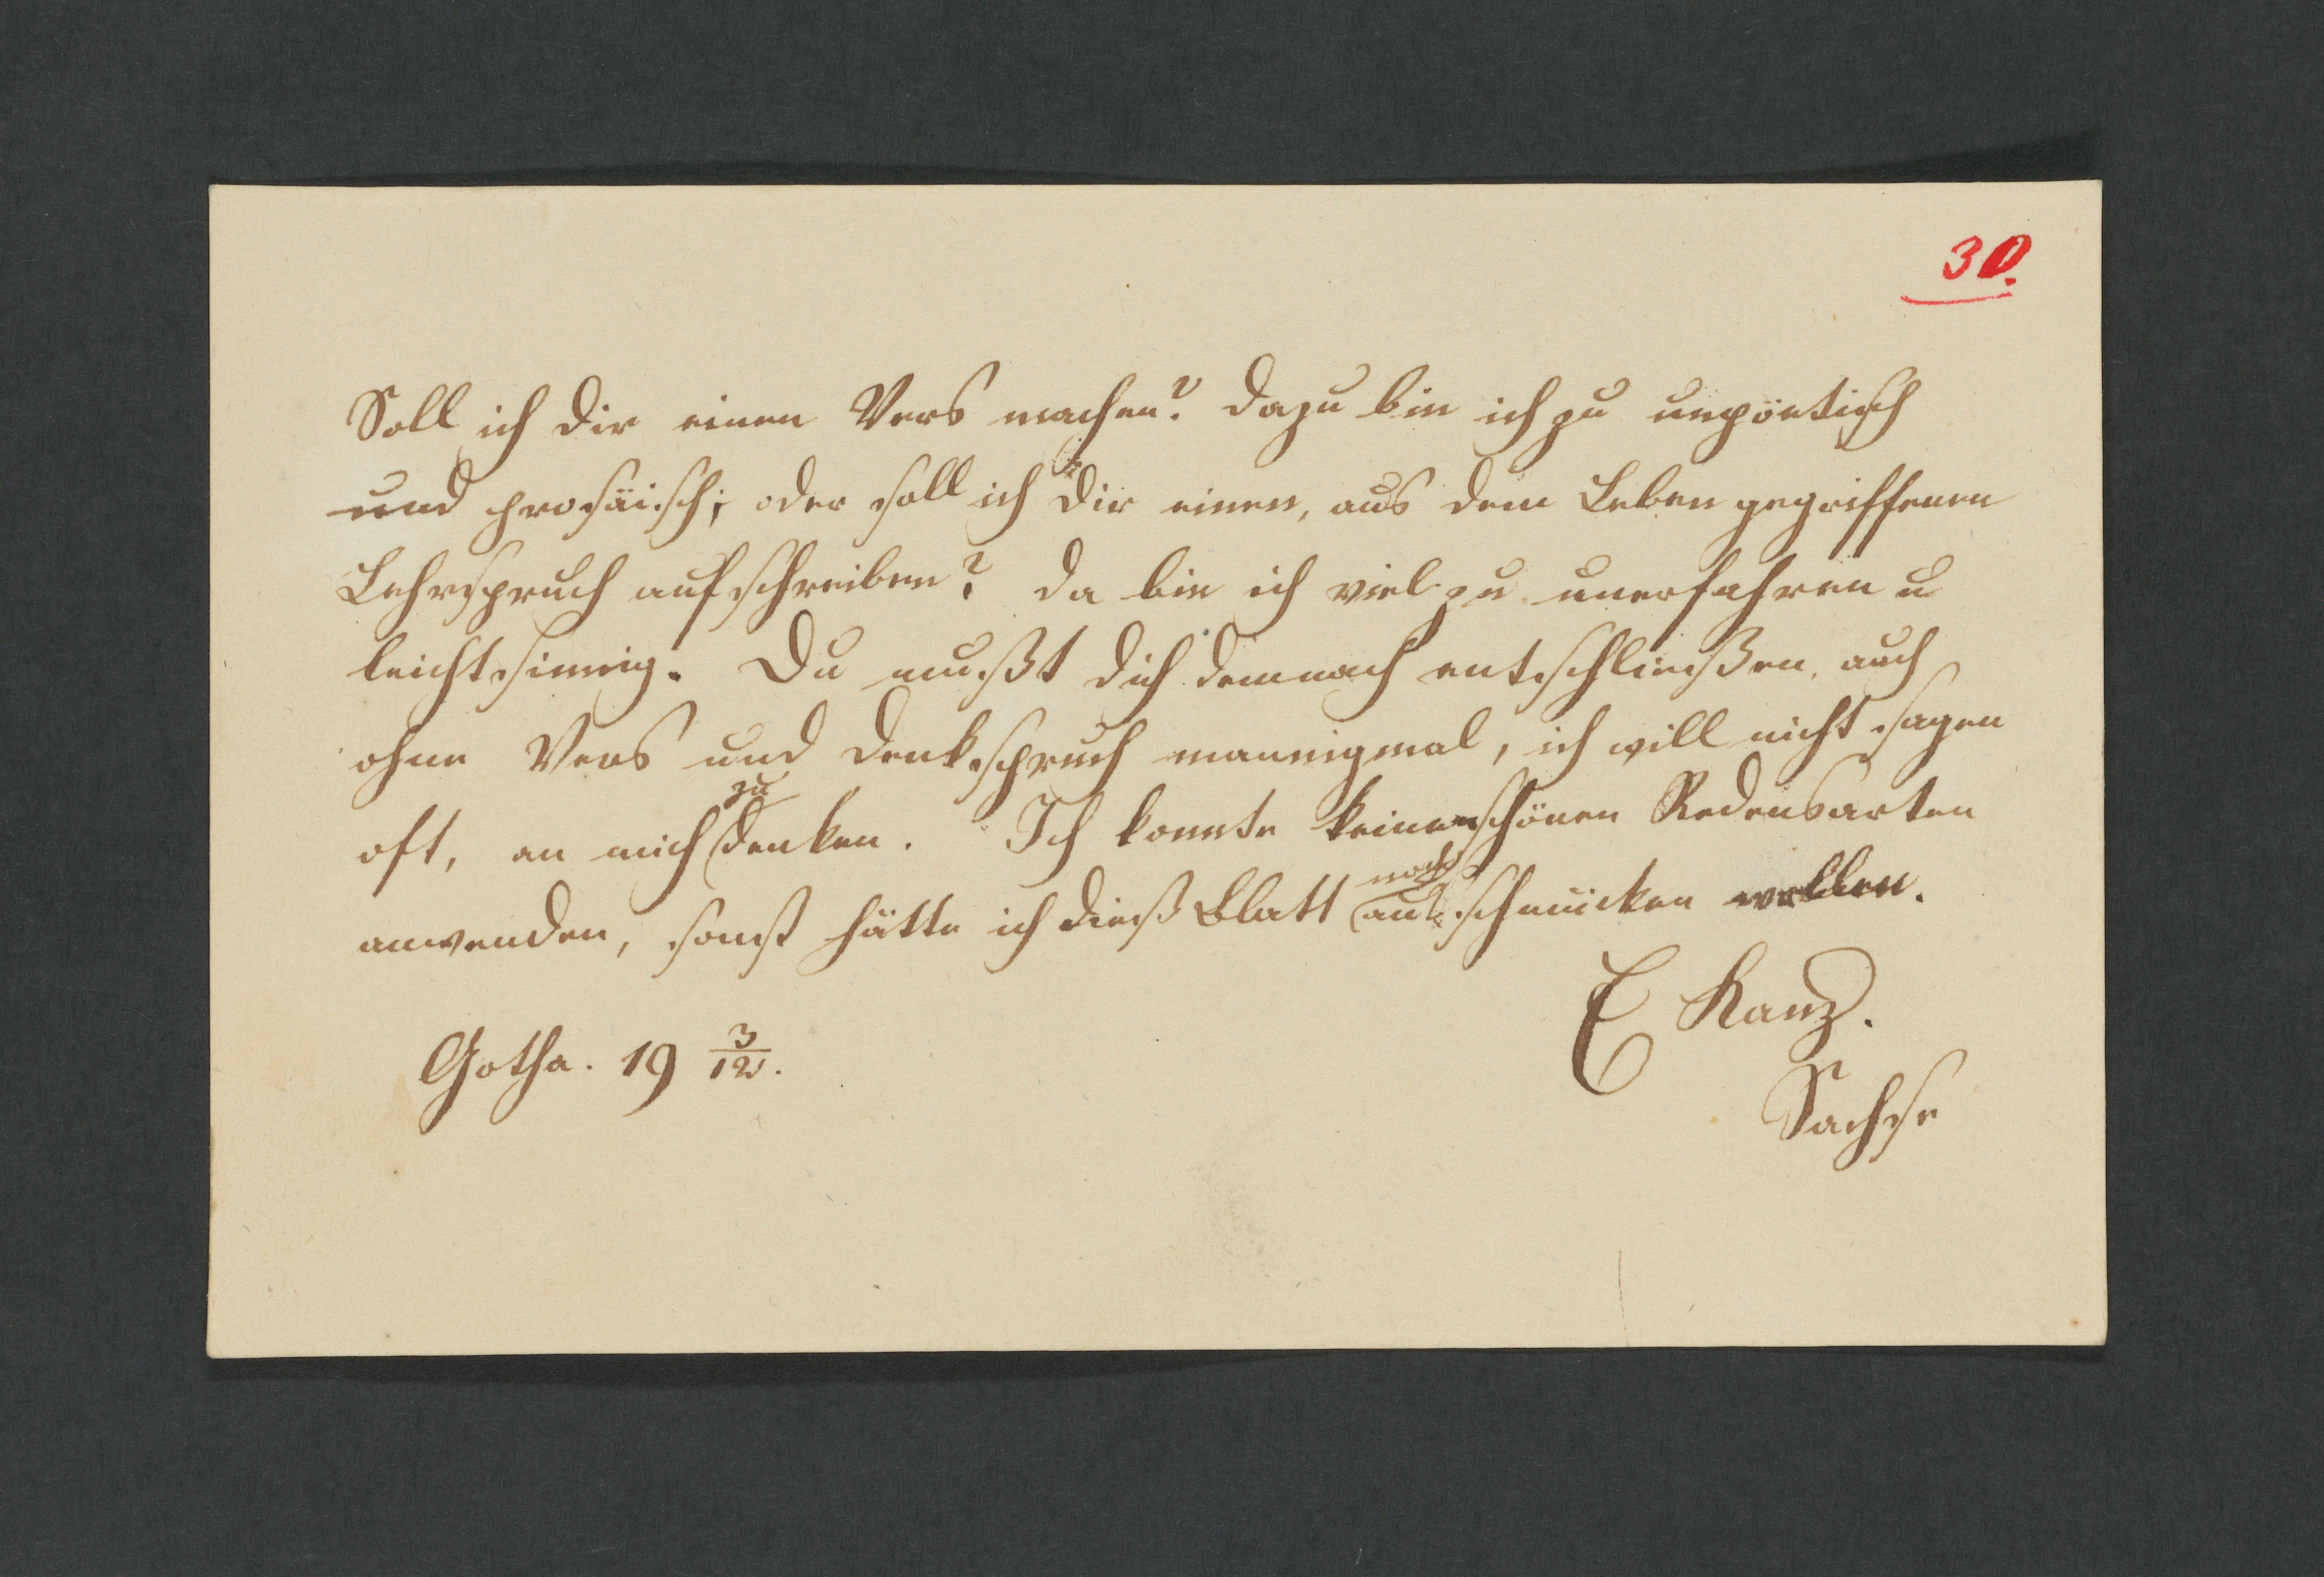 30.
Soll ich dir einen Vers machen? dazu bin ich zu unpöetisch
und prosäisch; oder soll ich dir einen, aus dem Leben gegriffenen
Lehrspruch aufschreiben? da bin ich viel zu unerfahren u
leichtsinnig. Du mußt dich demnach entschließen, auch
ohne Vers und Denkspruch mannigmal, ich will nicht sagen
oft, an mich zu denken. Ich konnte keine schönen Redensarten
anwenden, sonst hätte ich dieß Blatt noch ausschmücken wollen.
E Kanz.
Gotha. 19 3/12.
Sachse